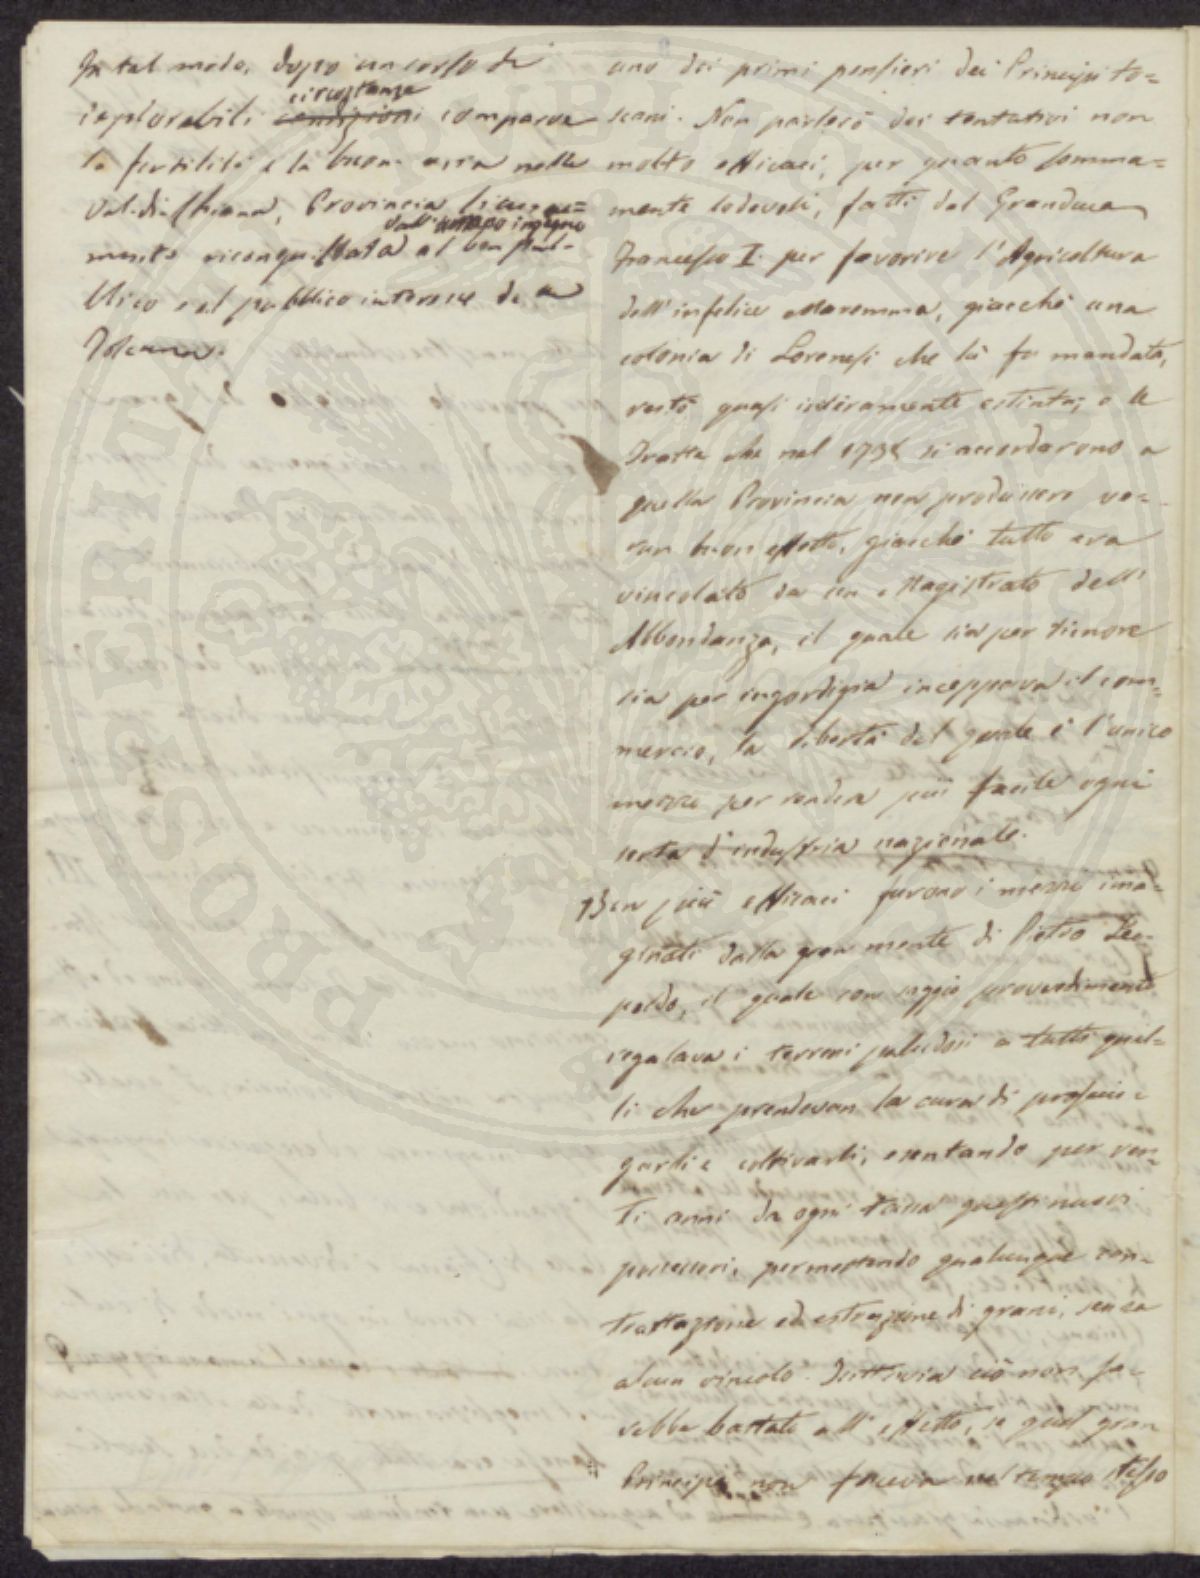 In tal modo, dopo un corso di
deplorabili condizioni circostanze comparve
la fertilità e la buon' aria nella
Val-di-Chiana, Provincia
riconquistata dall' umano ingegno al ben pub-
blico e al pubblico interesse della
Toscana.
uno dei primi pensieri dei Principi to=
scani. Non parlerò dei tentativi non
molto efficaci, per quanto somma=
mente lodevoli, fatti dal Granduca
Francesco I. per favorire l'Agricoltura
dell'infelice Maremma, giacchè una
colonia di Lorenesi che là fu mandata,
restò quasi interamente estinta; e le
Tratte che nel 1738 si accordarono a
quella Provincia non produssero ve=
run buon effetto, giacchè tutto era
vincolato da un Magistrato dell'
Abbondanza, il quale sia per timore
sia per ingordigia inceppava il com=
mercio, la libertà del quale è l'unico
mezzo per render più facile ogni
sorta d'industria nazionale.
Ben più efficaci furono i mezzi ima=
ginati dalla gran mente di Pietro Leo-
poldo, il quale con saggio provvedimento
regalava i terreni paludosi a tutti quel=
li che prendevan la cura di prosciu=
garli e coltivarli, esentando per ven=
ti anni da ogni tassa questi nuovi
possessori, permettendo qualunque con=
trattazione ed estrazione di grani, senza
alcun vincolo. Tuttavia ciò non sa=
rebbe bastato all'effetto, se quel gran
Principe non faceva nel tempo stesso